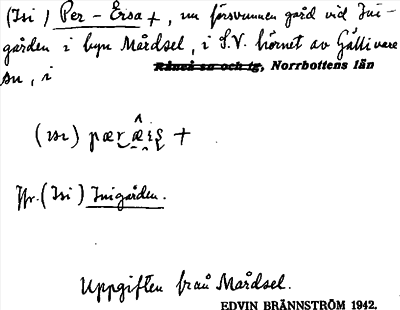 (Isi) Per-Ersa +, nu försvunnen gård vid Ini-
gården i byn Mårdsel, i S.V. hörnet av Gällivare
sn, i Råneå sn och tg, Norrbottens län
(ısı) pær æıʂ +
Jfr. (Isi) Inigården.
Uppgiften från Mårdsel.
EDVIN BRÄNNSTRÖM 1942.